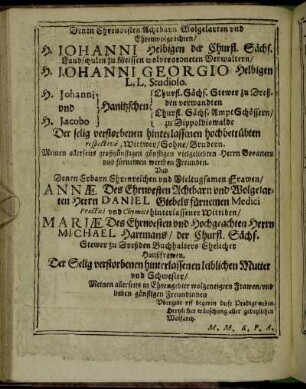 Denen Ehrenvesten Achtbarn Wolgelarten und
Ehrenwolgeachten/
H. JOHANNI Helbigen der Churfl. Sächs.
Landschulen zu Meissen wolverordneten Verwaltern/
H. JOHANNI GEORGIO Helbigen
L.L. Studioso.
H. Johanni
und
H. Jacobo
Hanitzschen
Churfl. Sächs. Stewer zu Dreß-
den verwandten
Churfl. Sächs. Ampt Schössern/
zu Dippoldiswalde
Der selig verstorbenen hinterlassenen hochbetrübten
respectivè, Wittwer/ Sohne/ Brudern.
Meinen allerseits großgünstigen günstigen vielgeliebten Herrn Gevattern
und fürnemen werthen Freunden.
Und
Denen Erbarn Ehrenreichen und Vieltugsamen Frawen/
ANNÆ Des Ehrnvesten Achtbarn und Wolgelar-
ten Herrn DANIEL Giebels fürnemen Medici
Practici und Chymici hinterlassener Wittiben/
MARIÆ Des Ehrnvesten und Hochgeachten Herrn
MICHAEL Hartmans/ der Churfl. Sächs.
Stewer zu Dreßden Buchhalters Ehelicher
Haußfrawen.
Der Selig verstorbenen hinterlassenen leiblichen Mutter
und Schwester/
Meinen allerseits in Ehrengebür wolgeneigten Frawen/ und
lieben günstigen Freundinnen
Ubergibt uff begeren diese Predigt neben
Hertzlicher wünschung aller gedeylichen
Wolfarth
M. M. S. P. A.